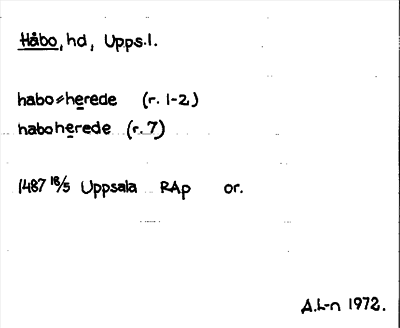 Håbo, hd, Upps.l.
habo⸗herede (r. 1-2)
haboherede (r. 7)
1487 18/5 Uppsala RAp or.
A.L-n 1972.